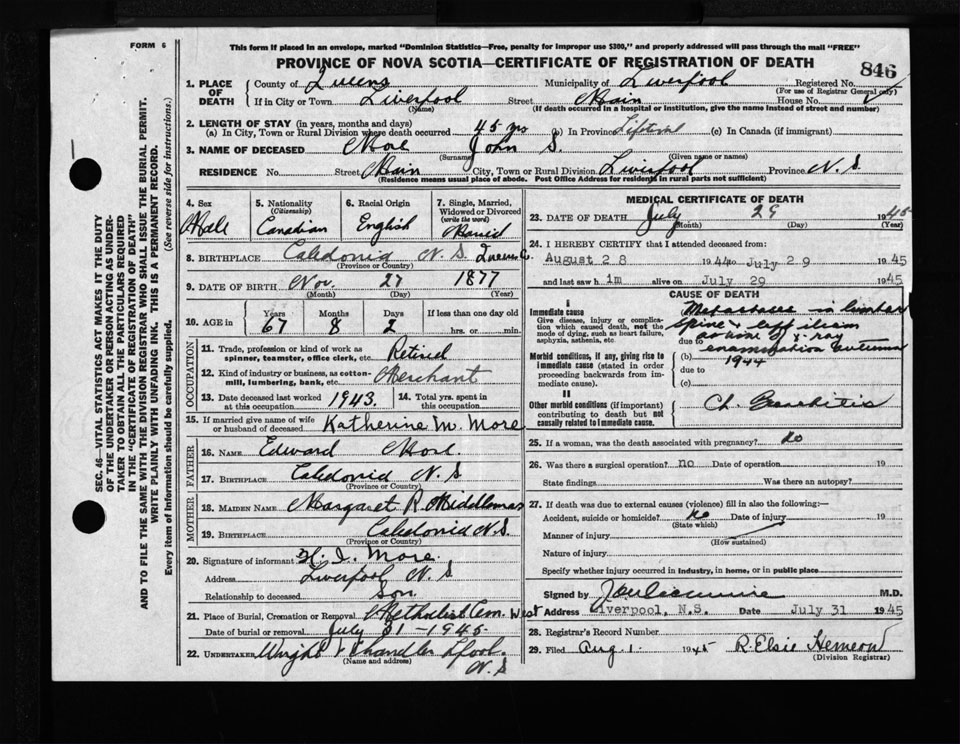 FORM 6
This form if placed in an envelope, marked "Dominion Statistics—Free, penalty for improper use $300," and properly addressed will pass through the mail "FREE"
PROVINCE OF NOVA SCOTIA—CERTIFICATE OF REGISTRATION OF DEATH
846
1. PLACE OF DEATH
County of Queens Municipality of Liverpool Registered No.
(For use of Registrar General only)
If in City or Town Liverpool Street Main House No.
(Name)
(If death occurred in a hospital or institution, give the name instead of street and number)
2. LENGTH OF STAY (in years, months and days)
(a) In City, Town or Rural Division where death occurred 45 yrs (b) In Province Lifetime (c) In Canada (if immigrant)
3. NAME OF DECEASED More John S.
(Surname) (Given name or names)
RESIDENCE No. Street Main City, Town or Rural Division Liverpool Province N.S
(Residence means usual place of abode. Post Office Address for residents in rural parts not sufficient)
4. Sex Male
5. Nationality (Citizenship) Canadian
6. Racial Origin English
7. Single, Married, Widowed or Divorced (write the word)
8. BIRTHPLACE Caledonia N.S. Queens Co.
(Province or Country)
9. DATE OF BIRTH Nov. 27 1877
(Month) (Day) (Year)
10. AGE in Years Months Days If less than one day old
67 8 2 hrs. or min.
OCCUPATION
11. Trade, profession or kind of work as spinner, teamster, office clerk, etc. Retired
12. Kind of industry or business, as cotton-mill, lumbering, bank, etc. Merchant
13. Date deceased last worked at this occupation 1943. 14. Total yrs. spent in this occupation
15. If married give name of wife or husband of deceased Katherine M. More
FATHER
16. NAME Edward More
17. BIRTHPLACE Caledonia N.S
(Province or Country)
MOTHER
18. MAIDEN NAME Margaret R. Middlemas
19. BIRTHPLACE Caledonia N.S.
(Province or Country)
20. Signature of informant H. I. More.
Address Liverpool N.S
Relationship to deceased Son
21. Place of Burial, Cremation or Removal Methodist Cem. West
Date of burial or removal July 31-1945.
22. UNDERTAKER Wright & Chandler Lpool.
(Name and address) N.S
MEDICAL CERTIFICATE OF DEATH
23. DATE OF DEATH July 29 1945
(Month) (Day) (Year)
24. I HEREBY CERTIFY that I attended deceased from:
August 28 1944 to July 29 1945
and last saw h im alive on July 29 1945
CAUSE OF DEATH
I
Immediate cause
Give disease, injury or complication which caused death, not the mode of dying, such as heart failure, asphyxia, asthenia, etc.
Metastases in lumbar
spine & left ilium
due to x-ray
Morbid conditions, if any, giving rise to immediate cause (stated in order proceeding backwards from immediate cause).
(b) examination autumn
due to 1944
(c)
II
Other morbid conditions (if important) contributing to death but not causally related to immediate cause.
Ch.
25. If a woman, was the death associated with pregnancy? no
26. Was there a surgical operation? no Date of operation 19
State findings Was there an autopsy?
27. If death was due to external causes (violence) fill in also the following:—
Accident, suicide or homicide? No Date of injury 19
(State which)
Manner of injury
(How sustained)
Nature of injury
Specify whether injury occurred in industry, in home, or in public place
Signed by M.D.
Address Liverpool, N.S. Date July 31 1945
28. Registrar's Record Number
29. Filed Aug. 1. 1945 R. Elsie Hemeon
(Division Registrar)
SEC. 46—VITAL STATISTICS ACT MAKES IT THE DUTY
OF THE UNDERTAKER OR PERSON ACTING AS UNDER-
TAKER TO OBTAIN ALL THE PARTICULARS REQUIRED
IN THE "CERTIFICATE OF REGISTRATION OF DEATH"
AND TO FILE THE SAME WITH THE DIVISION REGISTRAR WHO SHALL ISSUE THE BURIAL PERMIT.
WRITE PLAINLY WITH UNFADING INK. THIS IS A PERMANENT RECORD.
Every item of information should be carefully supplied. (See reverse side for instructions.)